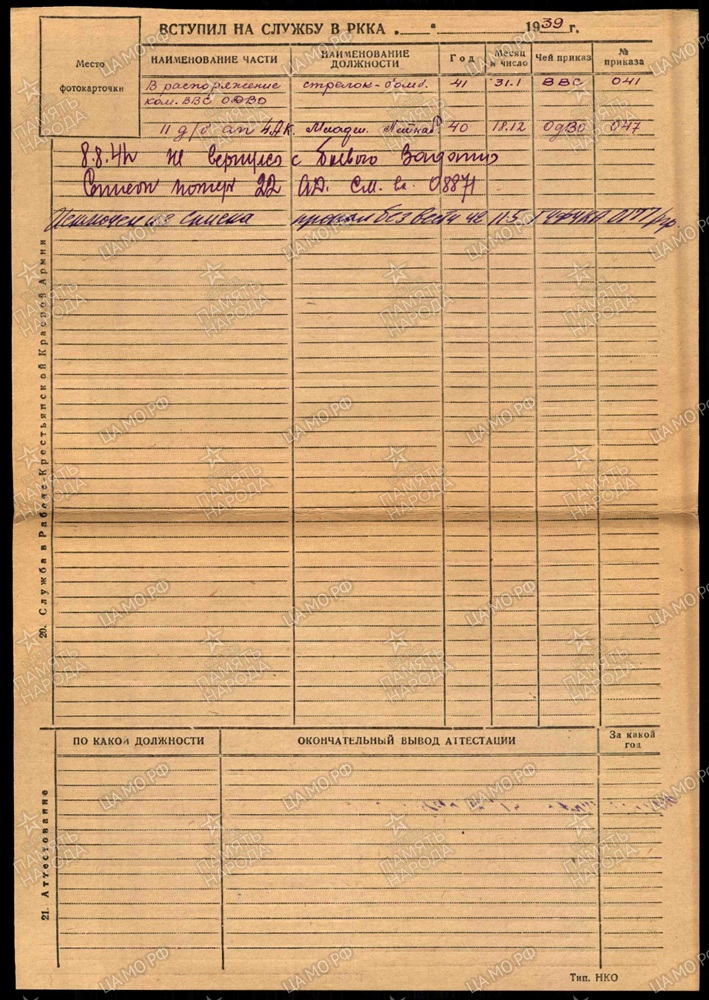 ВСТУПИЛ НА СЛУЖБУ В РККА „ “ 1939 г.
Место фотокарточки
НАИМЕНОВАНИЕ ЧАСТИ НАИМЕНОВАНИЕ ДОЛЖНОСТИ Год Месяц и число Чей приказ № приказа
В распоряжение стрелок-бомб. 41 31.1 ВВС 041
ком. ВВС ОДВО
11 д/б ап 4АК. Младш. 40 18.12 ОДВО 047
8.8.41 Не вернулся с боевого задания
Список потерь 22 АД. см. вх. 08871
Исключен из списка пропал без вести 42 11.5
20. Служба в Рабоче-Крестьянской Красной Армии
ПО КАКОЙ ДОЛЖНОСТИ ОКОНЧАТЕЛЬНЫЙ ВЫВОД АТТЕСТАЦИИ За какой год
21. Аттестование
Тип. НКО
ПАМЯТЬ НАРОДА
ЦАМО.РФ